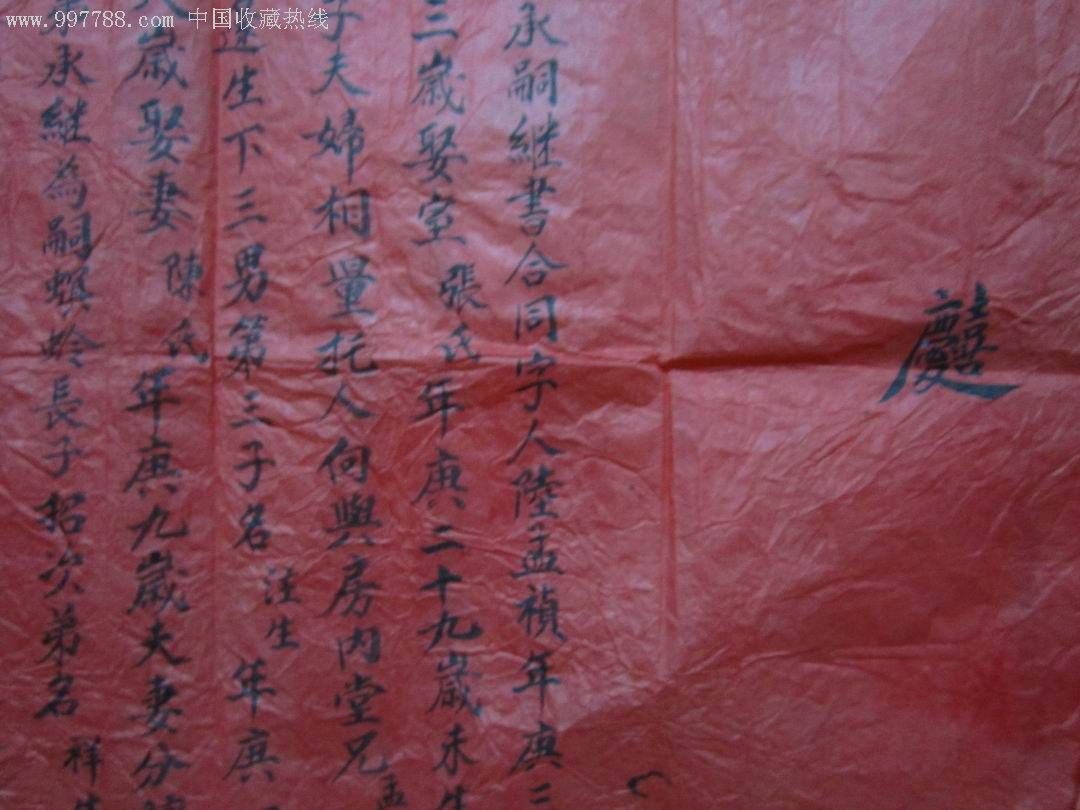 www.997788.com 中国收藏热线
慶
囍
承嗣継書合同字人陸孟禎年庚二
三歲娶室張氏年庚二十九歲未生
子夫婦相量托人向與房内堂兄孟
生下三男第三子名汪生年庚
歲娶妻陳氏年庚九歲夫妻分
承継為嗣螟蛉長子招次弟名祥生